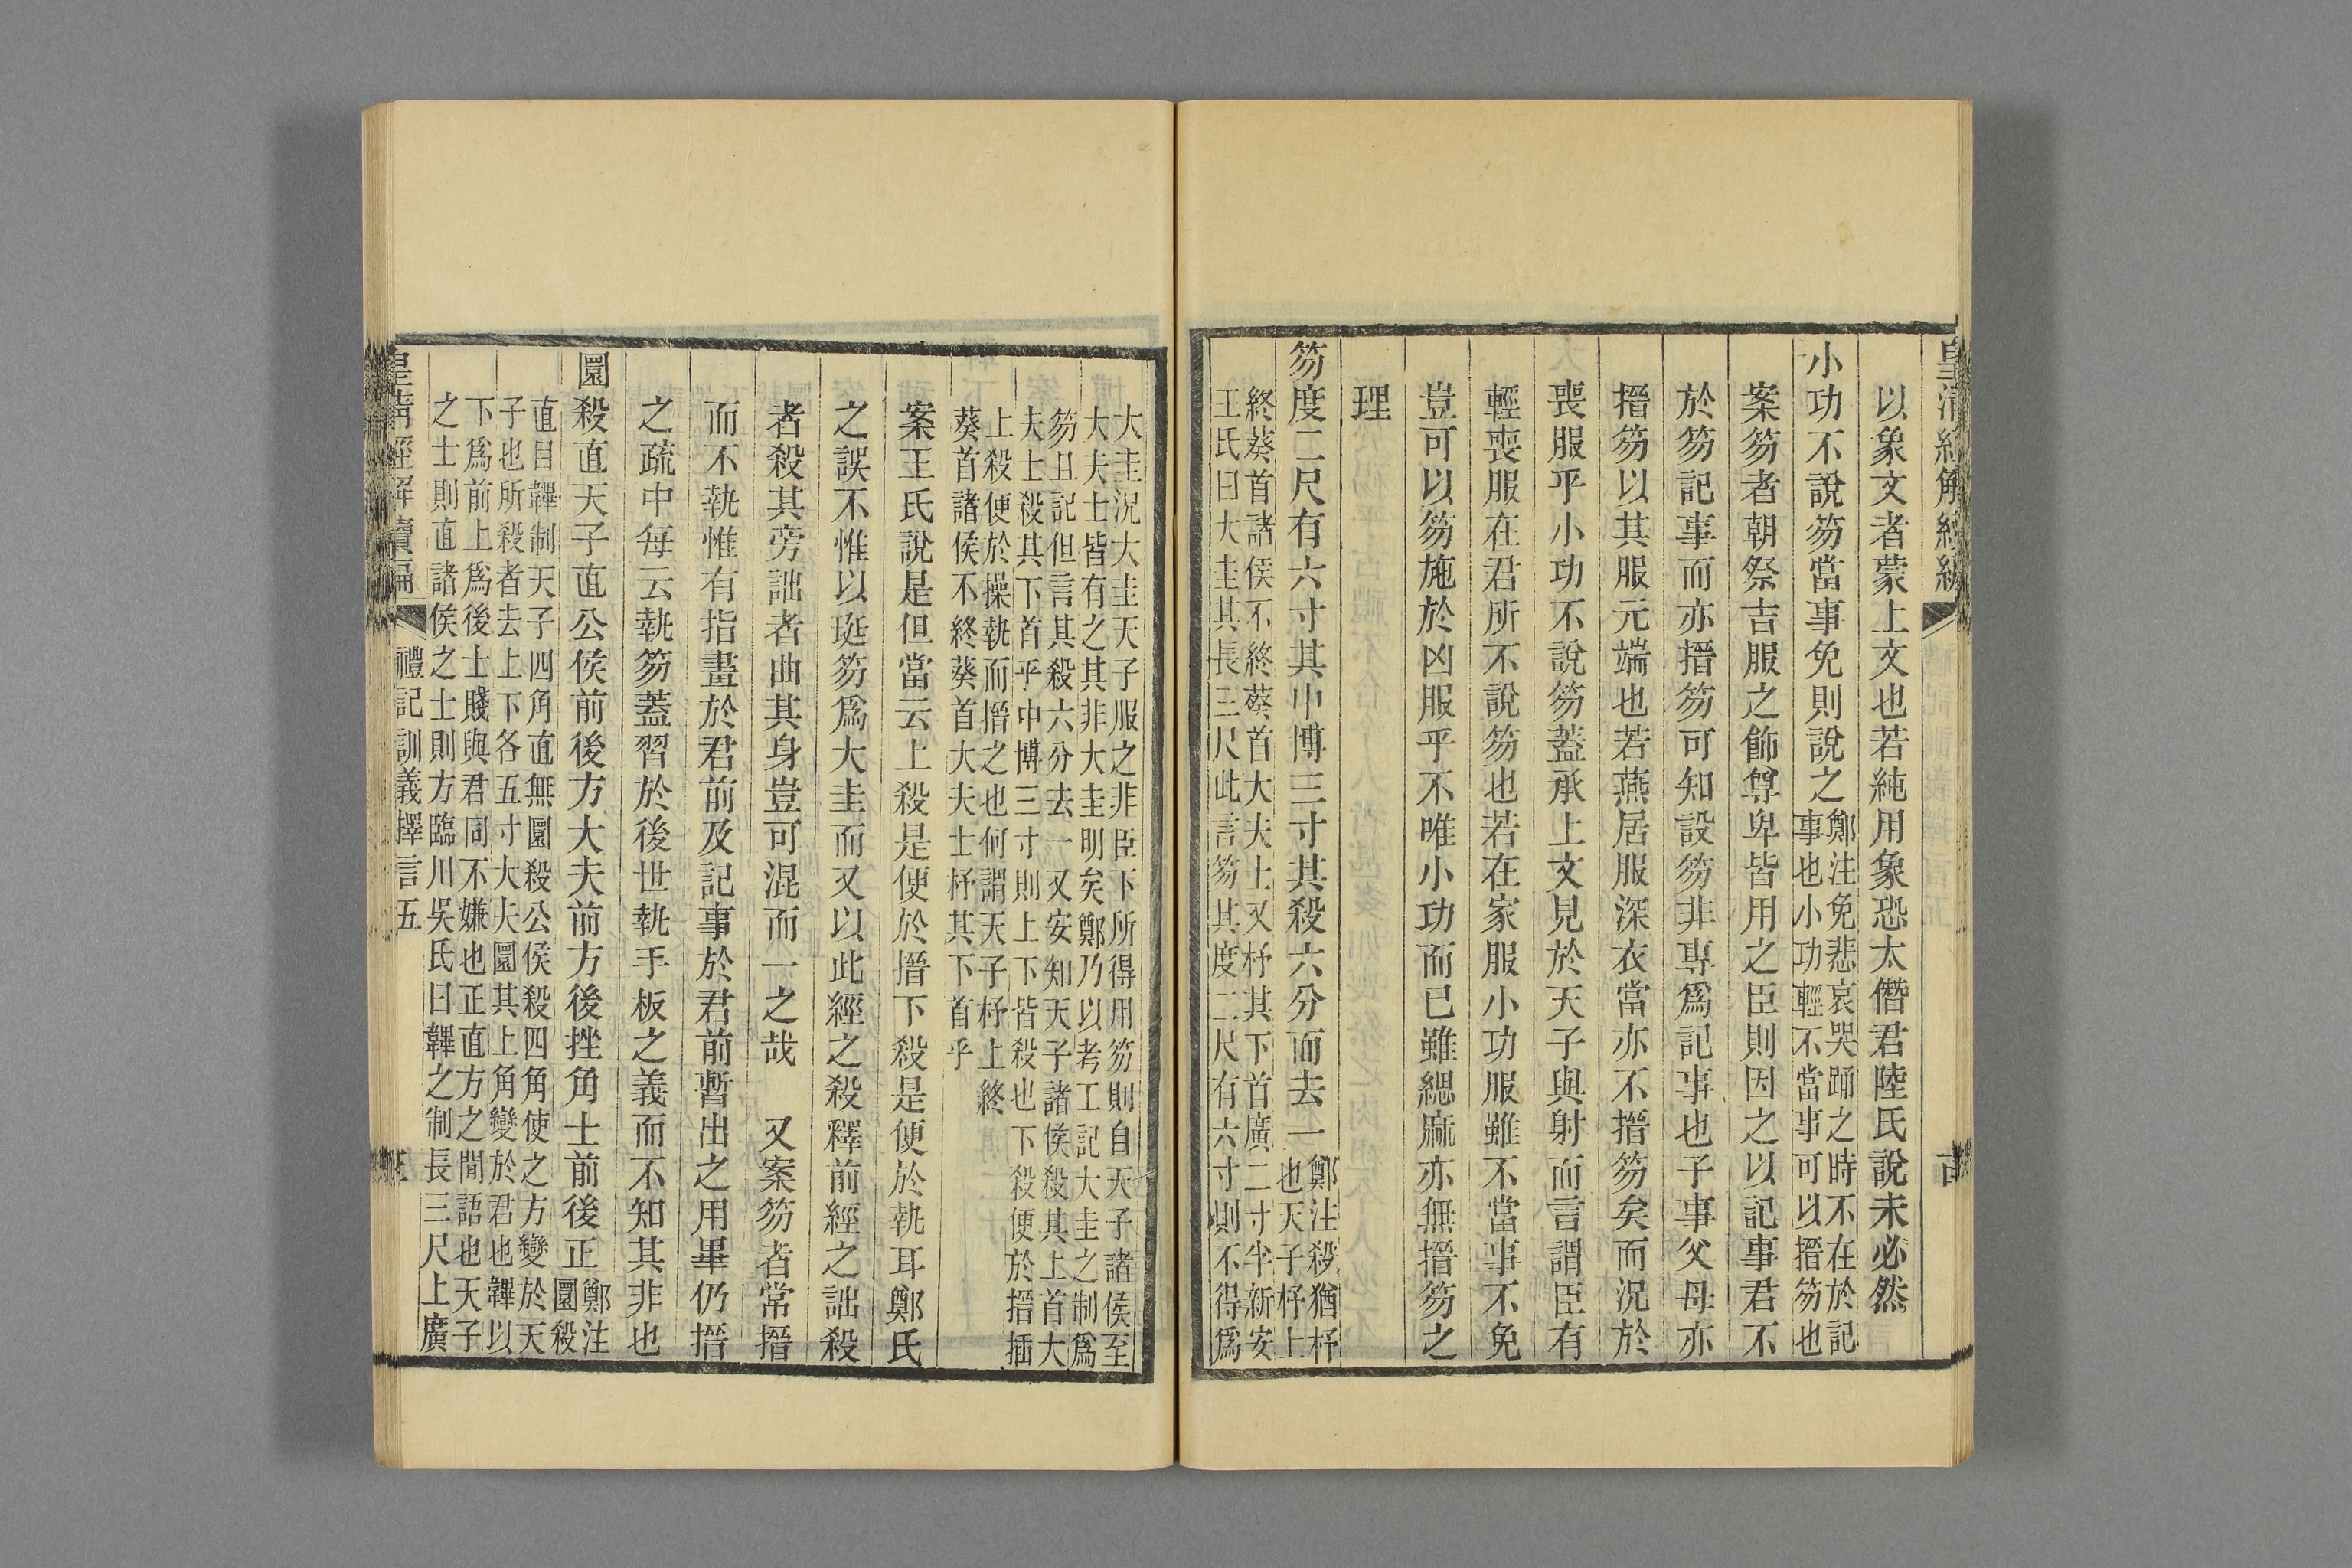 以象文者蒙上文也若純用象恐太僭君陸氏說未必然
小功不說笏當事免則說之
鄭注免悲哀哭踊之時不在於記
事也小功輕不當事可以搢笏也
案笏者朝祭吉服之飾尊卑皆用之臣則因之以記事君不
於笏記事而亦搢笏可知設笏非專爲記事也子事父母亦
搢笏以其服元端也若燕居服深衣當亦不搢笏矣而況於
喪服乎小功不說笏蓋承上文見於天子與射而言謂臣有
輕喪服在君所不說笏也若在家服小功服雖不當事不免
豈可以笏施於凶服乎不唯小功而已雖緦麻亦無搢笏之
理
笏度二尺有六寸其中博三寸其殺六分而去一
鄭注殺猶杼
也天子杼上
終葵首諸侯不終葵首大夫士又杼其下首廣二寸半新安
王氏曰大圭其長三尺此言笏其度二尺有六寸則不得爲
大圭況大圭天子服之非臣下所得用笏則自天子諸侯至
大夫士皆有之其非大圭明矣鄭乃以考工記大圭之制爲
笏且記但言其殺六分去一又安知天子諸侯殺其上首大
夫士殺其下首乎中博三寸則上下皆殺也下殺便於搢插
上殺便於操執而搢之也何謂天子杼上終
葵首諸侯不終葵首大夫士杼其下首乎
案王氏說是但當云上殺是便於搢下殺是便於執耳鄭氏
之誤不惟以珽笏爲大圭而又以此經之殺釋前經之詘殺
者殺其旁詘者曲其身豈可混而一之哉　又案笏者常搢
而不執惟有指畫於君前及記事於君前暫出之用畢仍搢
之疏中每云執笏蓋習於後世執手板之義而不知其非也
圜殺直天子直公侯前後方大夫前方後挫角士前後正
鄭注
圜殺
直目韠制天子四角直無圜殺公侯殺四角使之方變於天
子也所殺者去上下各五寸大夫圜其上角變於君也韠以
下爲前上爲後士賤與君同不嫌也正直方之間語也天子
之士則直諸侯之士則方臨川吳氏曰韠之制長三尺上廣
皇清經解續編
禮記訓義擇言五